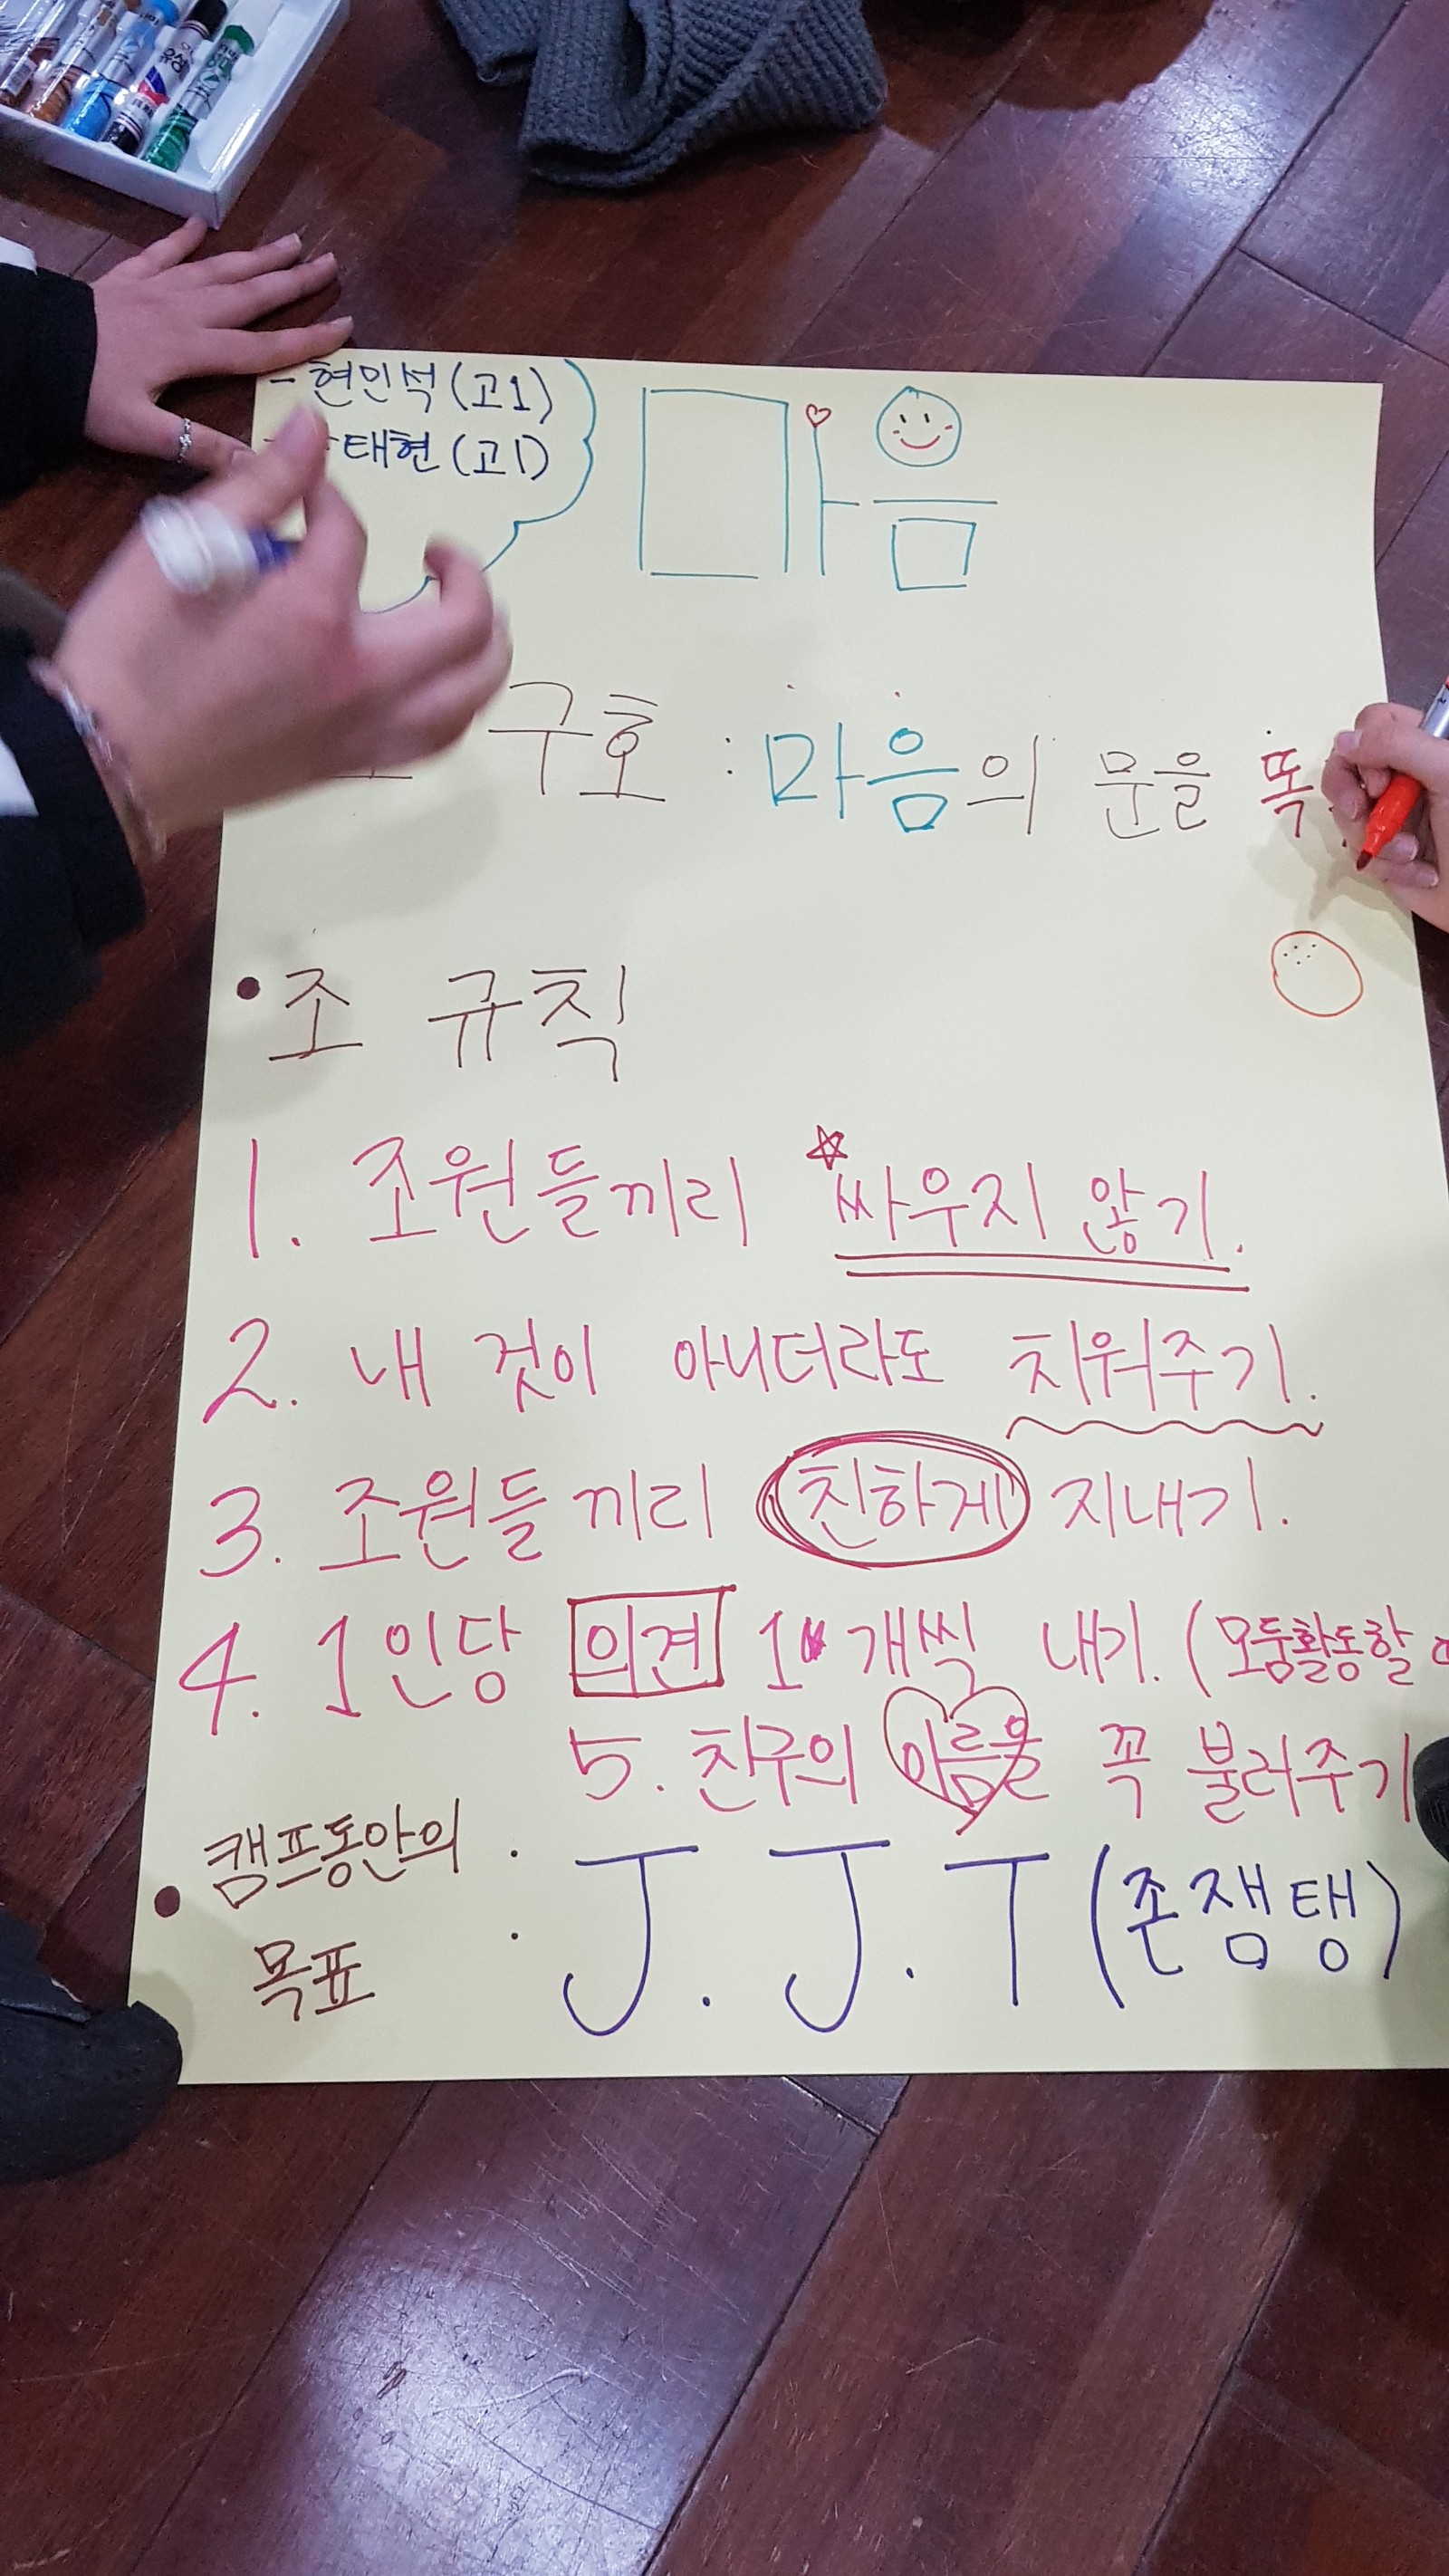 - 현인석 (고1)
태현 (고1)
마음
구호 : 마음의 문을 똑
• 조 규칙
1. 조원들끼리 싸우지 않기.
2. 내 것이 아니더라도 치워주기.
3. 조원들끼리 친하게 지내기.
4. 1인당 의견 1개씩 내기. (모둠활동할
5. 친구의 이름을 꼭 불러주기
• 캠프동안의 : J.J.T (존잼탱)
목표